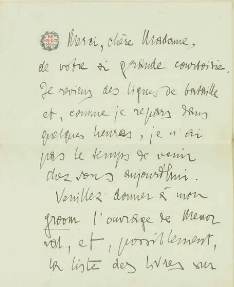 Merci, chère Madame,
de votre si grande courtoisie.
Je reviens des lignes de bataille
et, comme je repars dans
quelques heures, je n'ai
pas le temps de venir
chez vous aujourd'hui.
Veuillez donner à mon
groom l'ouvrage de Meneval,
et, possiblement,
la liste des livres sur